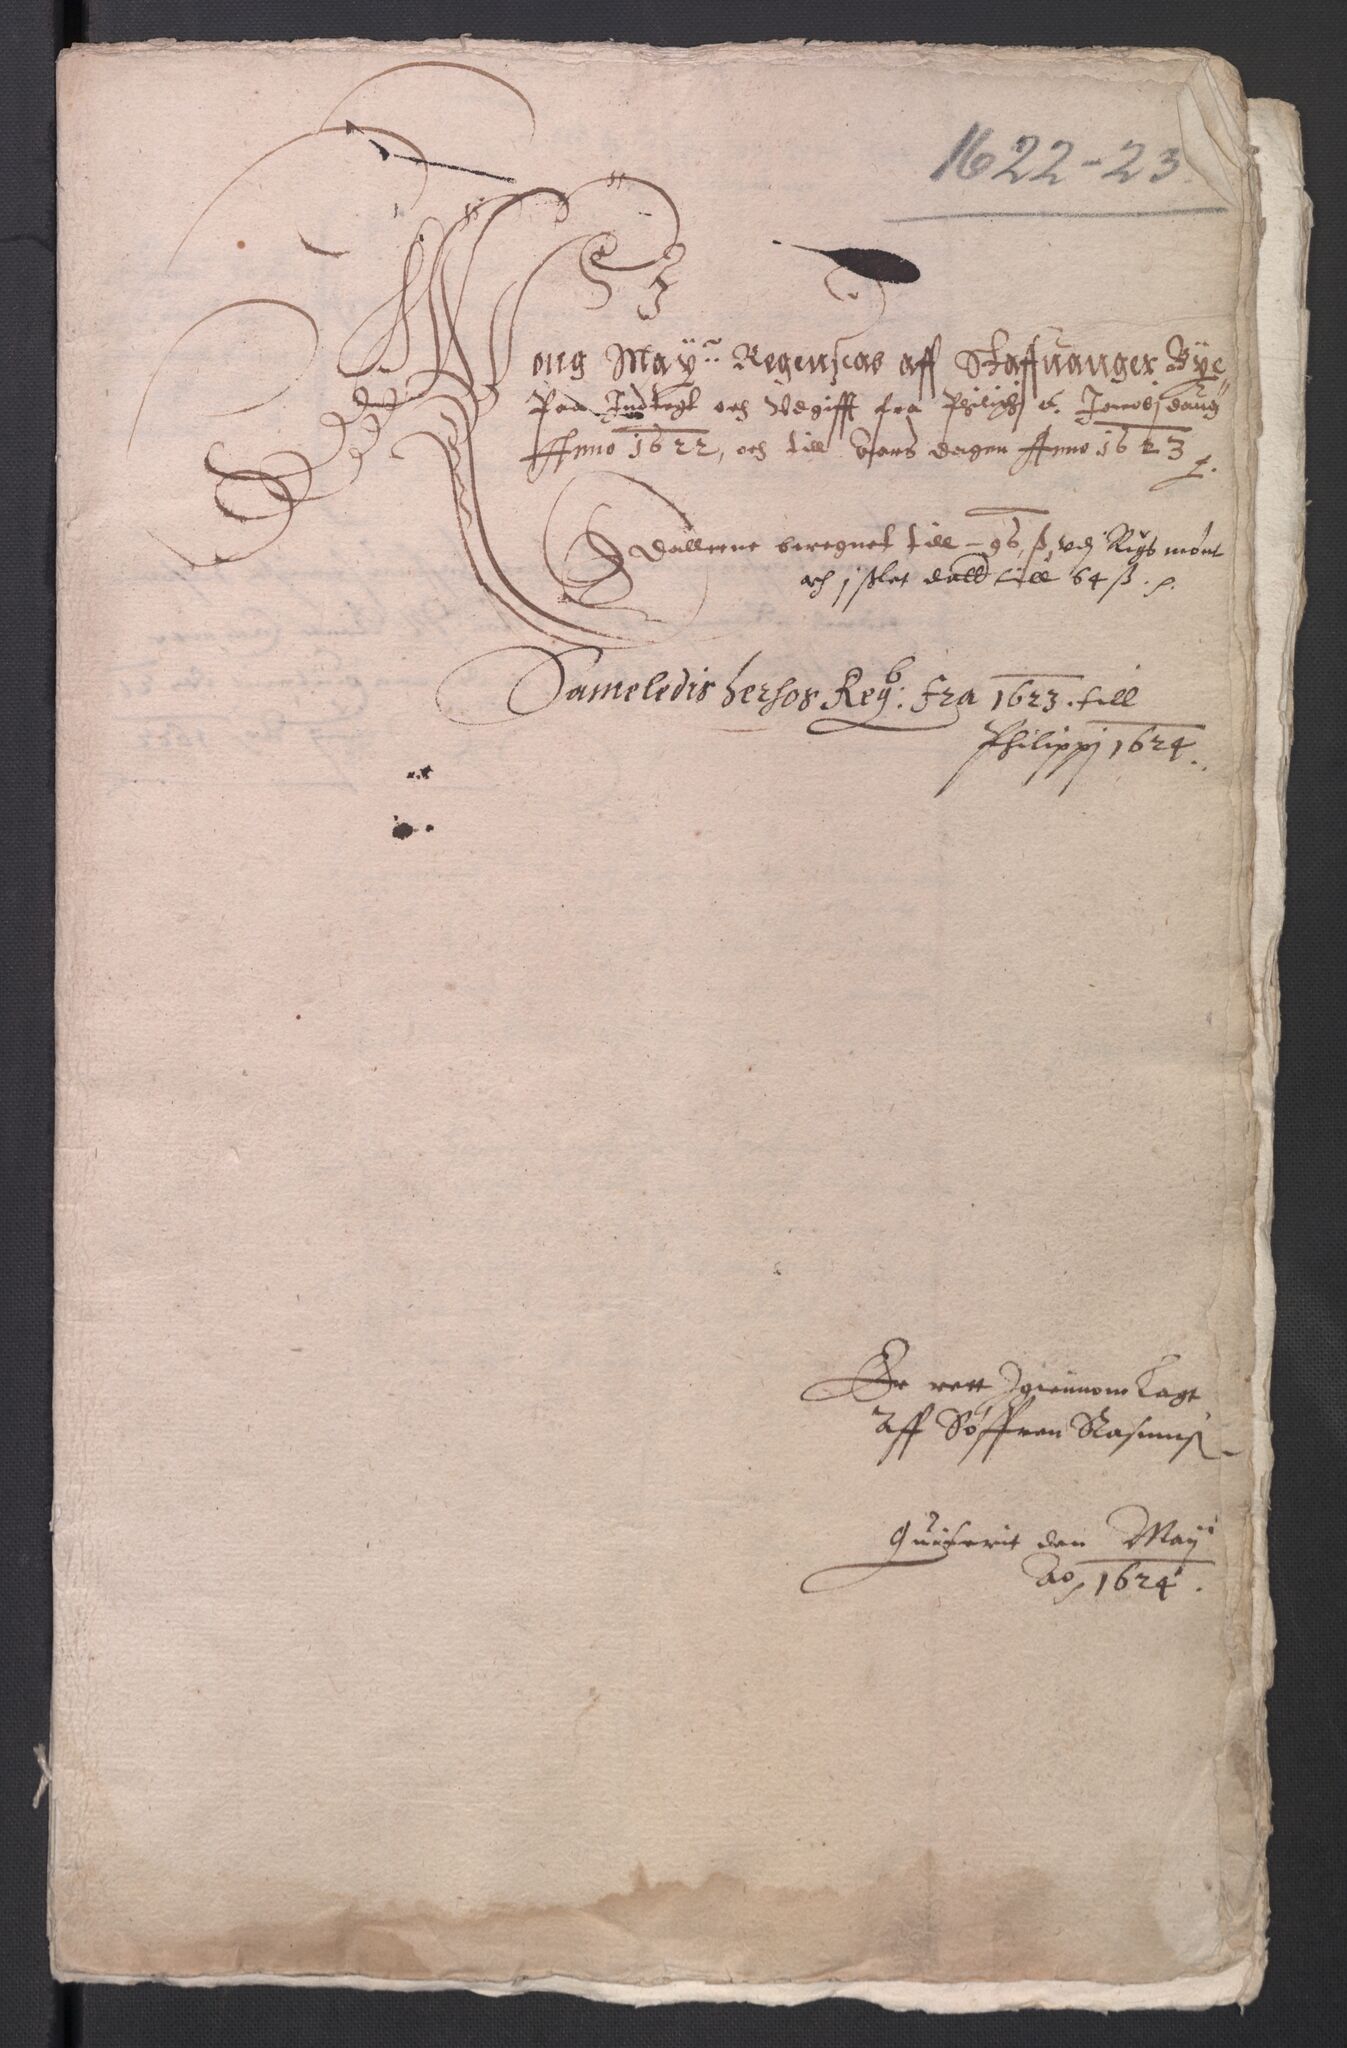 1622-23
Kong May:tz Regenscab aff Staffuanger Bye
Paa Indtegt och Vdgifft fra Philippi et Jacobi daug
Anno 1622, och till Aars dagen Anno 1623
Dallerne beregnet till - 96 ß, vdj Rigs mønt
och j slet dall till 64 ß.
Sameledis herhos Reg: fra 1623. till
Philippj 1624.
Er rett Igiennom Lagt
Aff Søffren Rasmuß
Quiterit den Maij
Ao 1624.